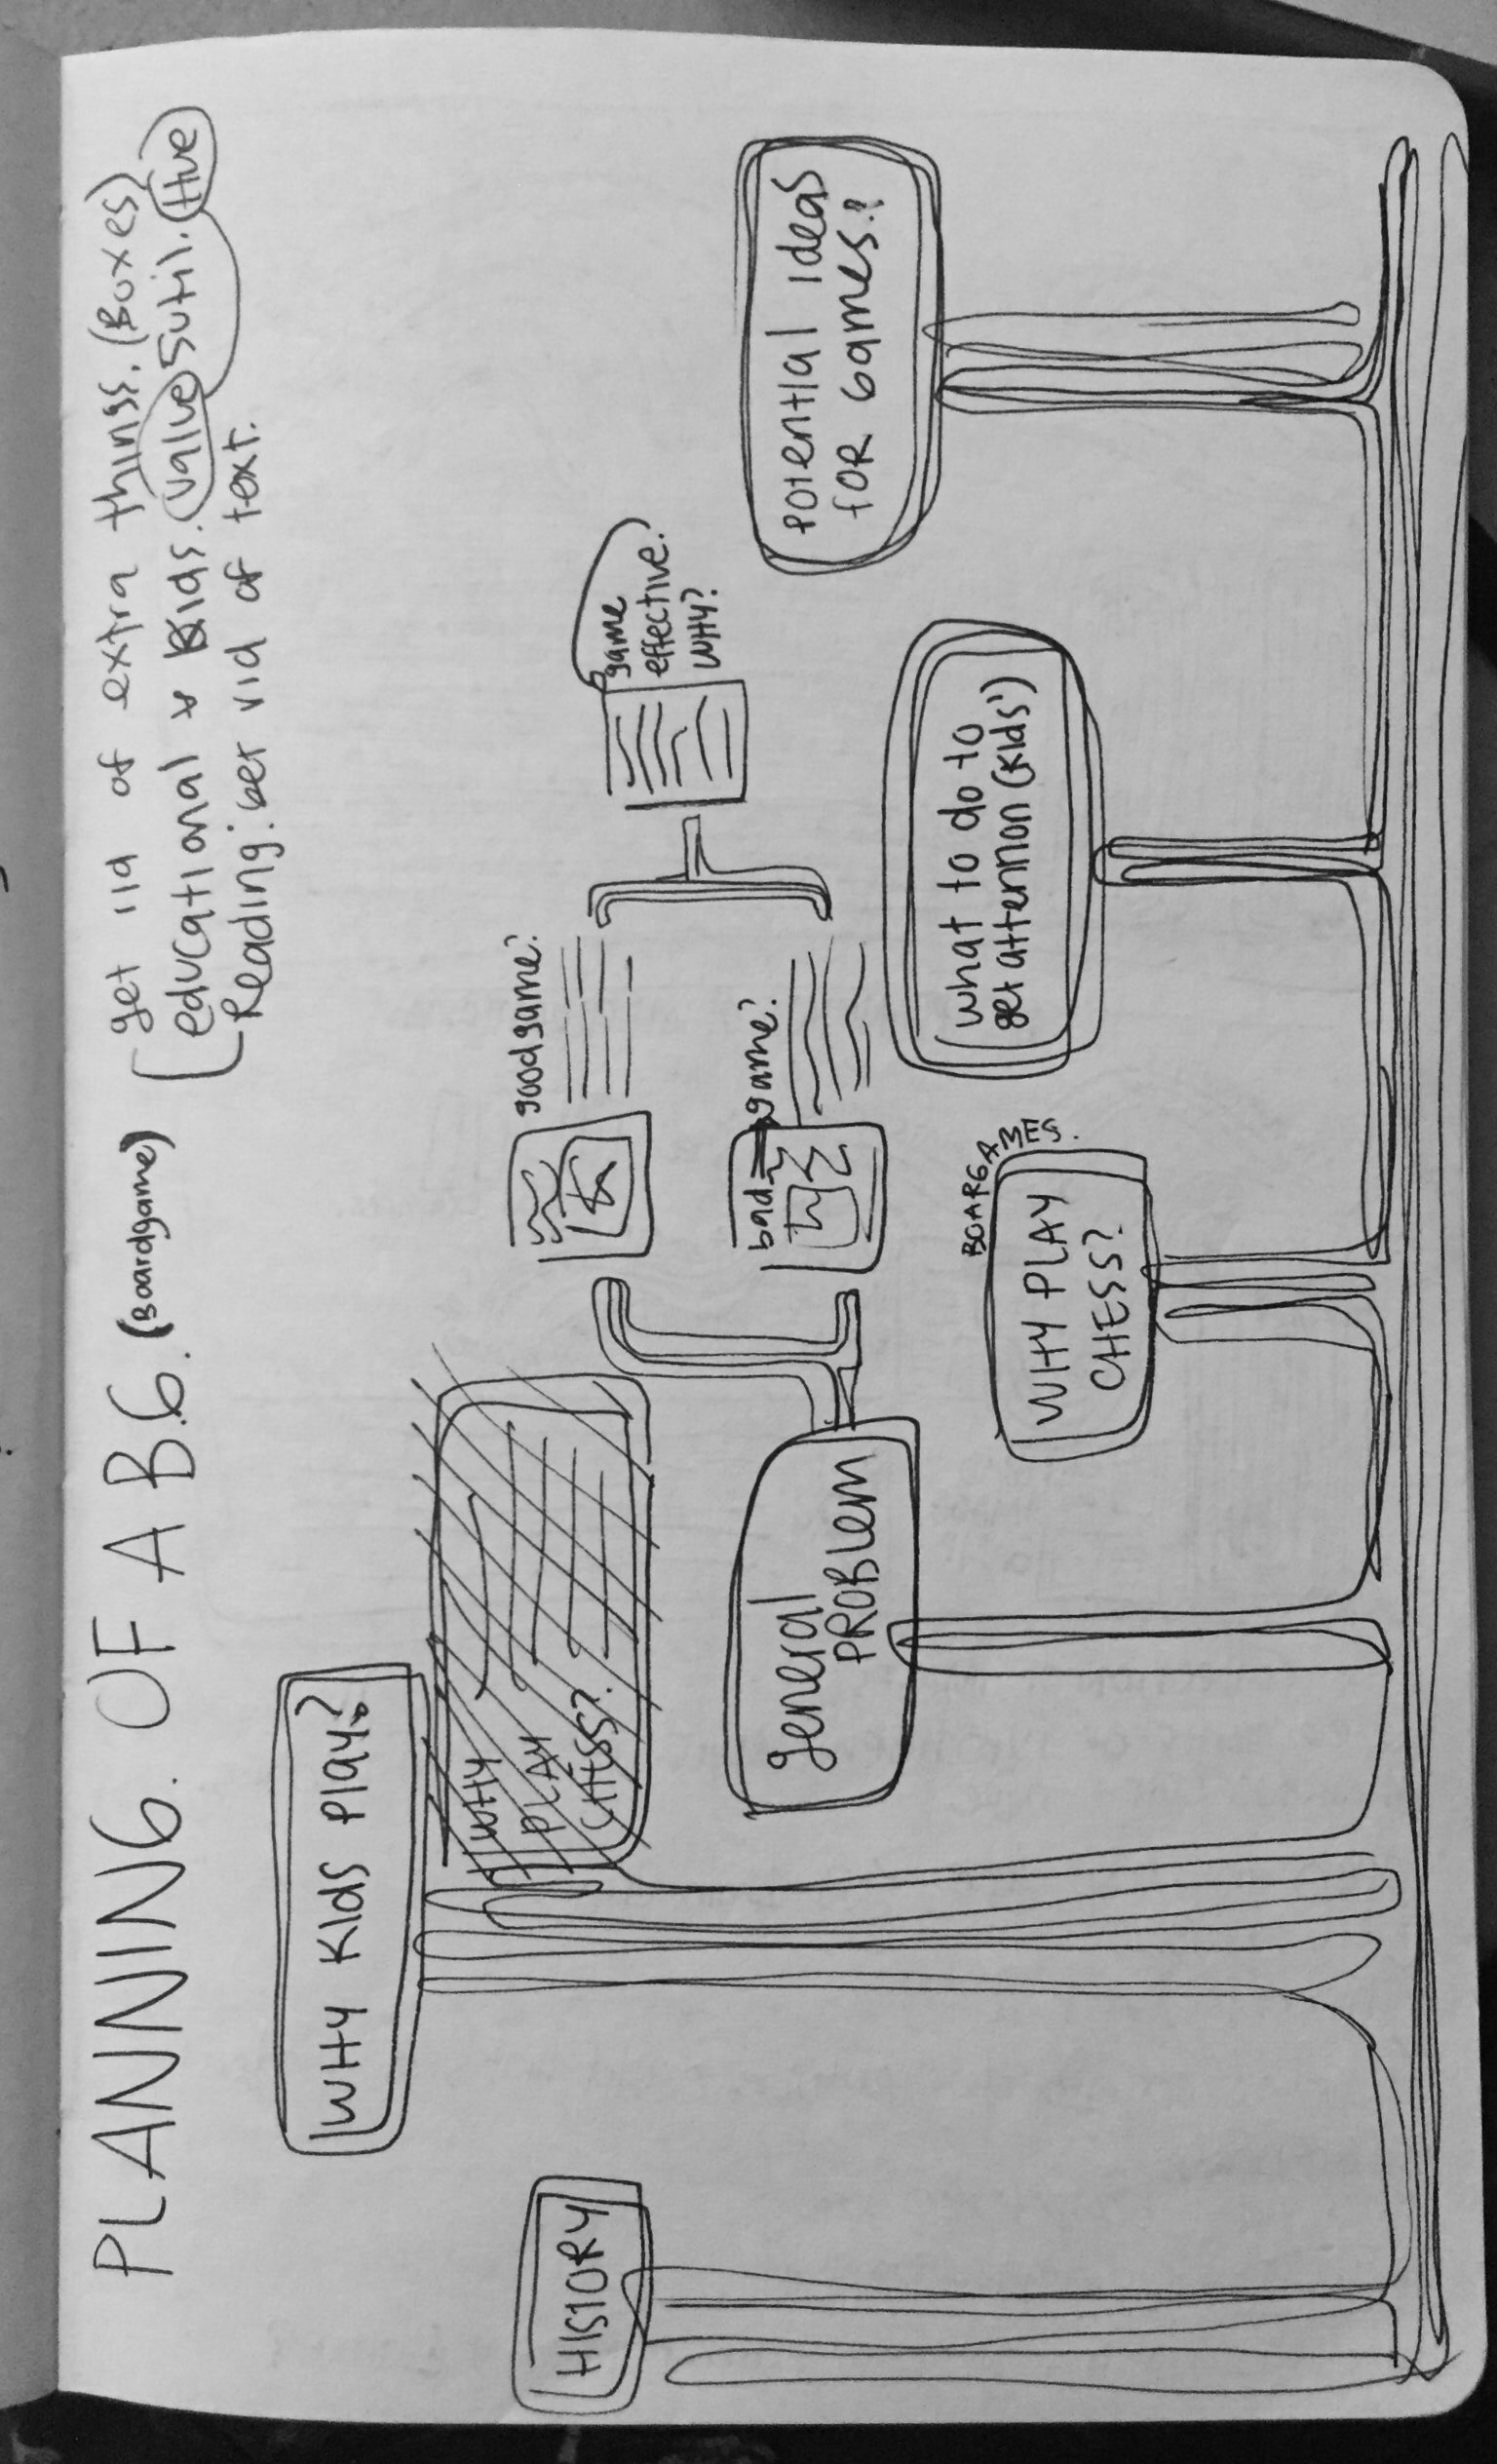 PLANNING. OF A B.G. (Boardgame)
get rid of extra things. (Boxes)
educational & Kids. value Sutil. Hive
Reading: get rid of text.
WHY KIds Play?
WHY
PLAY
CHESS?
HISTORY
general
PROBLEM
good game?
bad game?
game
effective.
WHY?
BOARGAMES.
WHY PLAY
CHESS?
what to do to
get attention (Kids')
POTENTIAL Ideas
FOR Games?